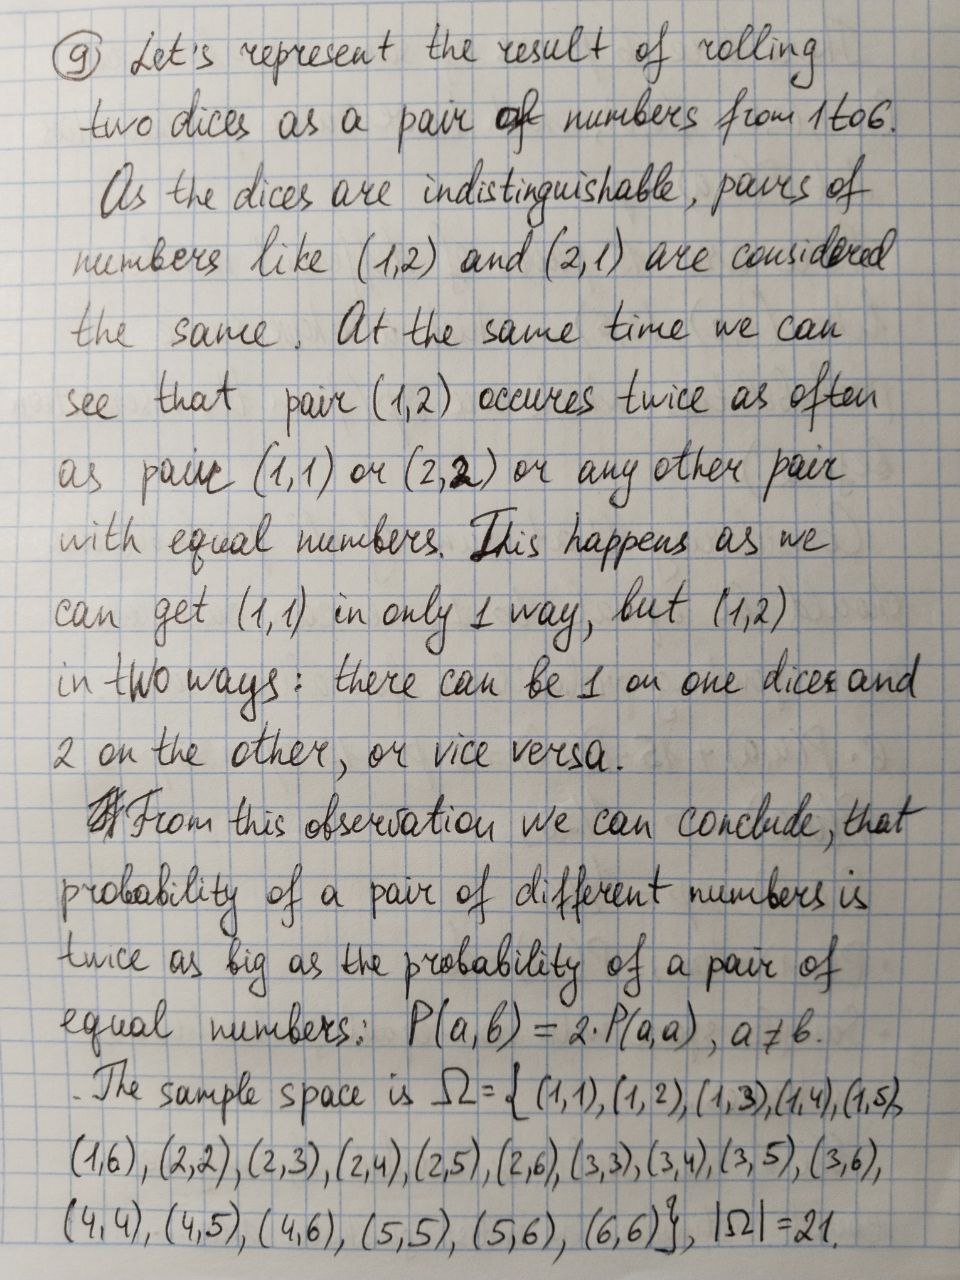 9 Let's represent the result of rolling
two dices as a pair of numbers from 1 to 6.
As the dices are indistinguishable, pairs of
numbers like (1,2) and (2,1) are considered
the same. At the same time we can
see that pair (1,2) occures twice as often
as pair (1,1) or (2,2) or any other pair
with equal numbers. This happens as we
can get (1,1) in only 1 way, but (1,2)
in two ways: there can be 1 on one dices and
2 on the other, or vice versa.
From this observation we can conclude, that
probability of a pair of different numbers is
twice as big as the probability of a pair of
equal numbers: P(a,b) = 2·P(a,a), a ≠ b.
The sample space is Ω = {(1,1), (1,2), (1,3), (1,4), (1,5),
(1,6), (2,2), (2,3), (2,4), (2,5), (2,6), (3,3), (3,4), (3,5), (3,6),
(4,4), (4,5), (4,6), (5,5), (5,6), (6,6)}, |Ω| = 21.